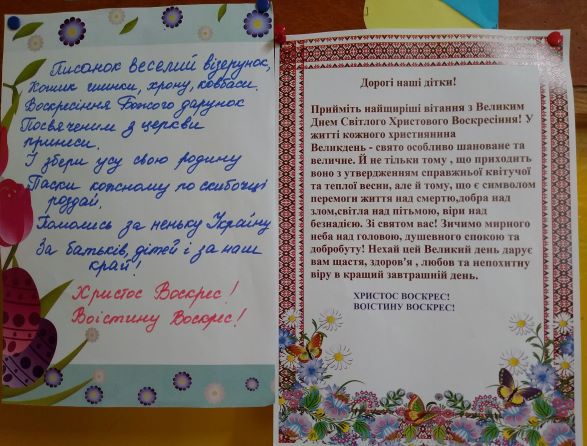 Писанок веселий візерунок,
Кошик шинки, хрону, ковбаси.
Воскресіння Божого дарунок
Посвяченим з церкви
принеси.
І збери усу свою родину
Паски кожному по скибочці
роздай.
Помолись за неньку Україну
За батьків, дітей і за наш
край!
Христос Воскрес!
Воістину Воскрес!
Дорогі наші дітки!
Прийміть найщиріші вітання з Великим
Днем Світлого Христового Воскресіння! У
житті кожного християнина
Великдень - свято особливо шановане та
величне. Й не тільки тому , що приходить
воно з утвердженням справжньої квітучої
та теплої весни, але й тому, що є символом
перемоги життя над смертю,добра над
злом,світла над пітьмою, віри над
безнадією. Зі святом вас! Зичимо мирного
неба над головою, душевного спокою та
добробуту! Нехай цей Великий день дарує
вам щастя, здоров'я , любов та непохитну
віру в кращий завтрашній день.
ХРИСТОС ВОСКРЕС!
ВОІСТИНУ ВОСКРЕС!